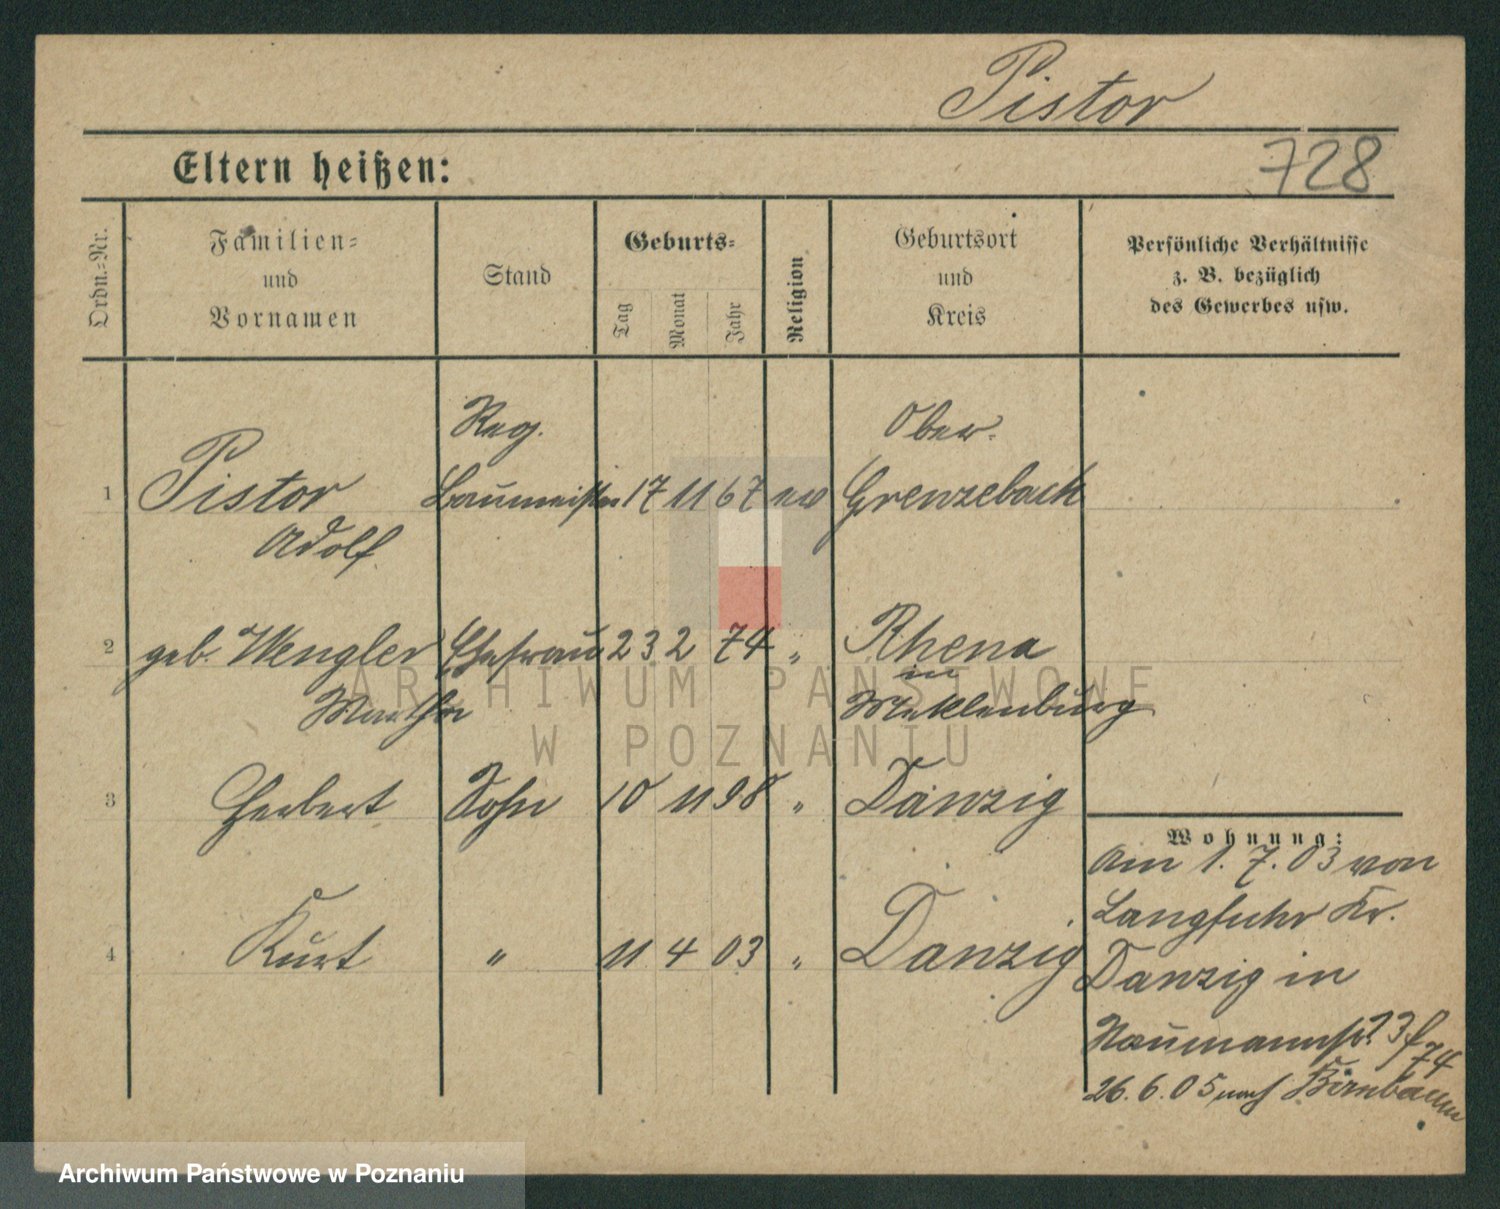 Pistor
Eltern heißen:
728
Ordn.=Nr.
Familien=
und
Vornamen
Stand
Geburts=
Tag
Monat
Jahr
Religion
Geburtsort
und
Kreis
Persönliche Verhältnisse
z. B. bezüglich
des Gewerbes usw.
Reg. Ober-
1 Pistor Baumeister 17 11 67 ev Grenzebach
Adolf
2 geb. Wengler Ehefrau 23 2 74 " Rhena
in
Martha Meklenburg
3 Herbert Sohn 10 11 98 " Danzig
Wohnung:
Am 1. 7. 03 von
Langfuhr Kr.
4 Kurt " 11 4 03 " Danzig
Danzig in
Naumannstr.
26. 6. 05 nach Birnbaum
ARCHIWUM PAŃSTWOWE
W POZNANIU
Archiwum Państwowe w Poznaniu